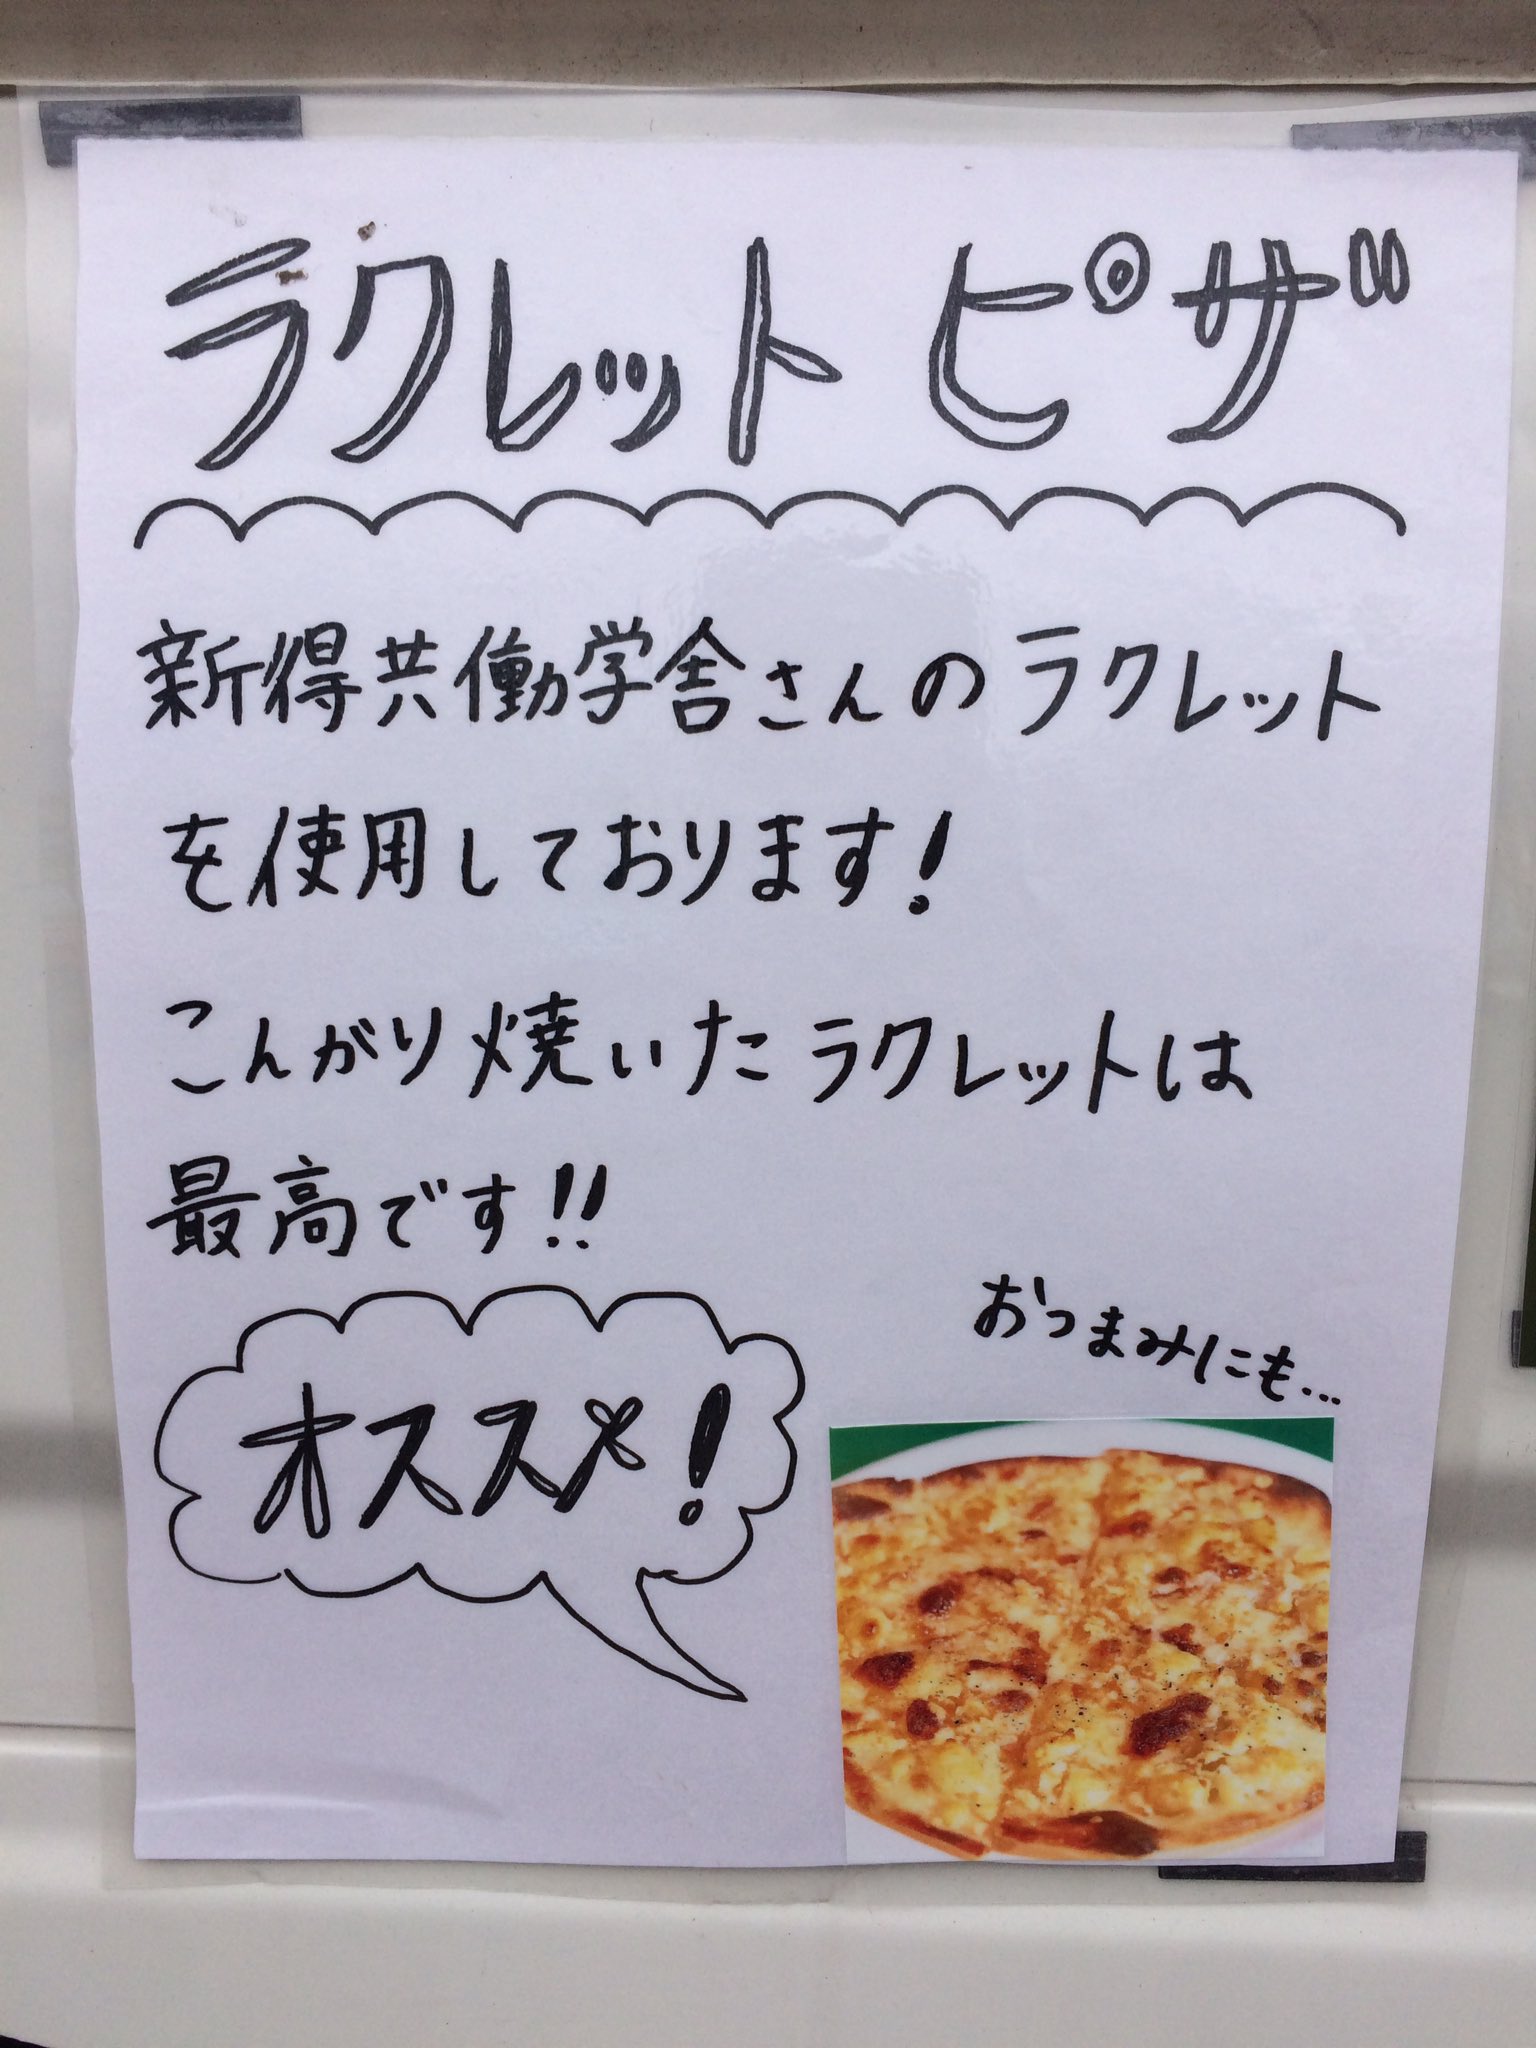 ラクレット ピザ
新得共働学舎さんのラクレット
を使用しております!
こんがり焼いたラクレットは
最高です!!
おつまみにも...
オススメ!